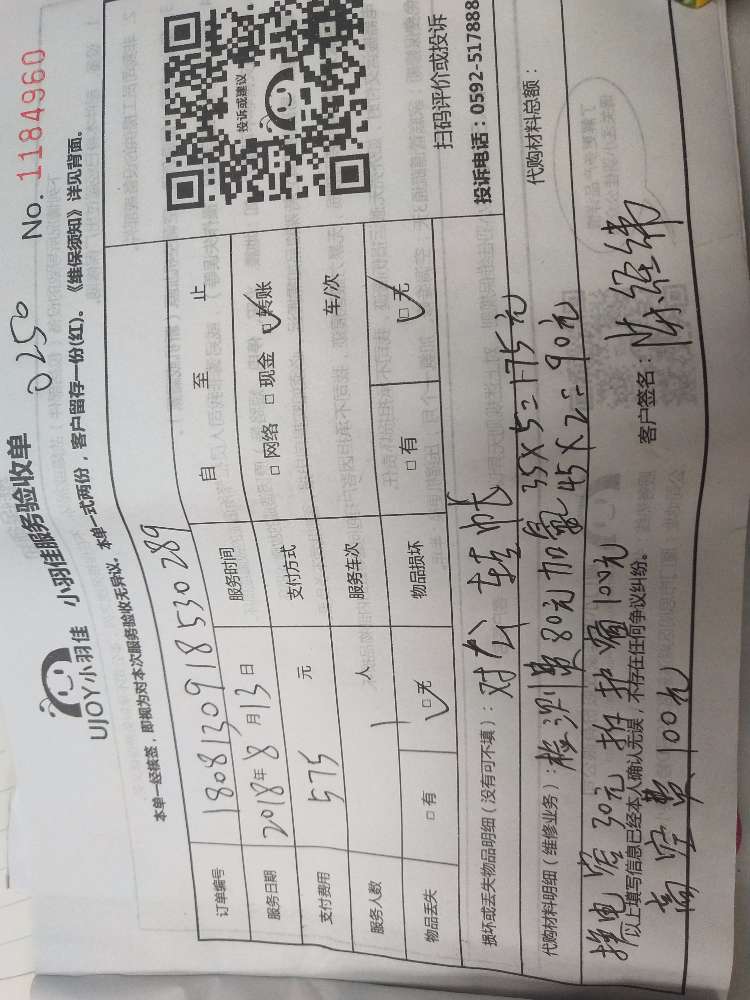 UJOY小羽佳 小羽佳服务验收单 0250 No. 1184960
本单一经核签，即视为对本次服务验收无异议。本单一式两份，客户留存一份(红)。《维保须知》详见背面。
订单编号 180813091 8530289
服务日期 2018年8月13日 服务时间 自 至 止
支付费用 575 元 支付方式 □网络 □现金 ☑转账
服务人数 1 人 服务车次 车/次
物品丢失 □有 ☑无 物品损坏 □有 ☑无
投诉或建议
扫码评价或投诉
投诉电话：0592-517888
损坏或丢失物品明细（没有可不填）：对公转帐
代购材料明细（维修业务）：检测费80元加氟35×5=175元 代购材料总额：
换电容30元 拆护窗100元 45×2=90元
以上填写信息已经本人确认无误，不存在任何争议纠纷。 客户签名：陈经纬
高空费100元